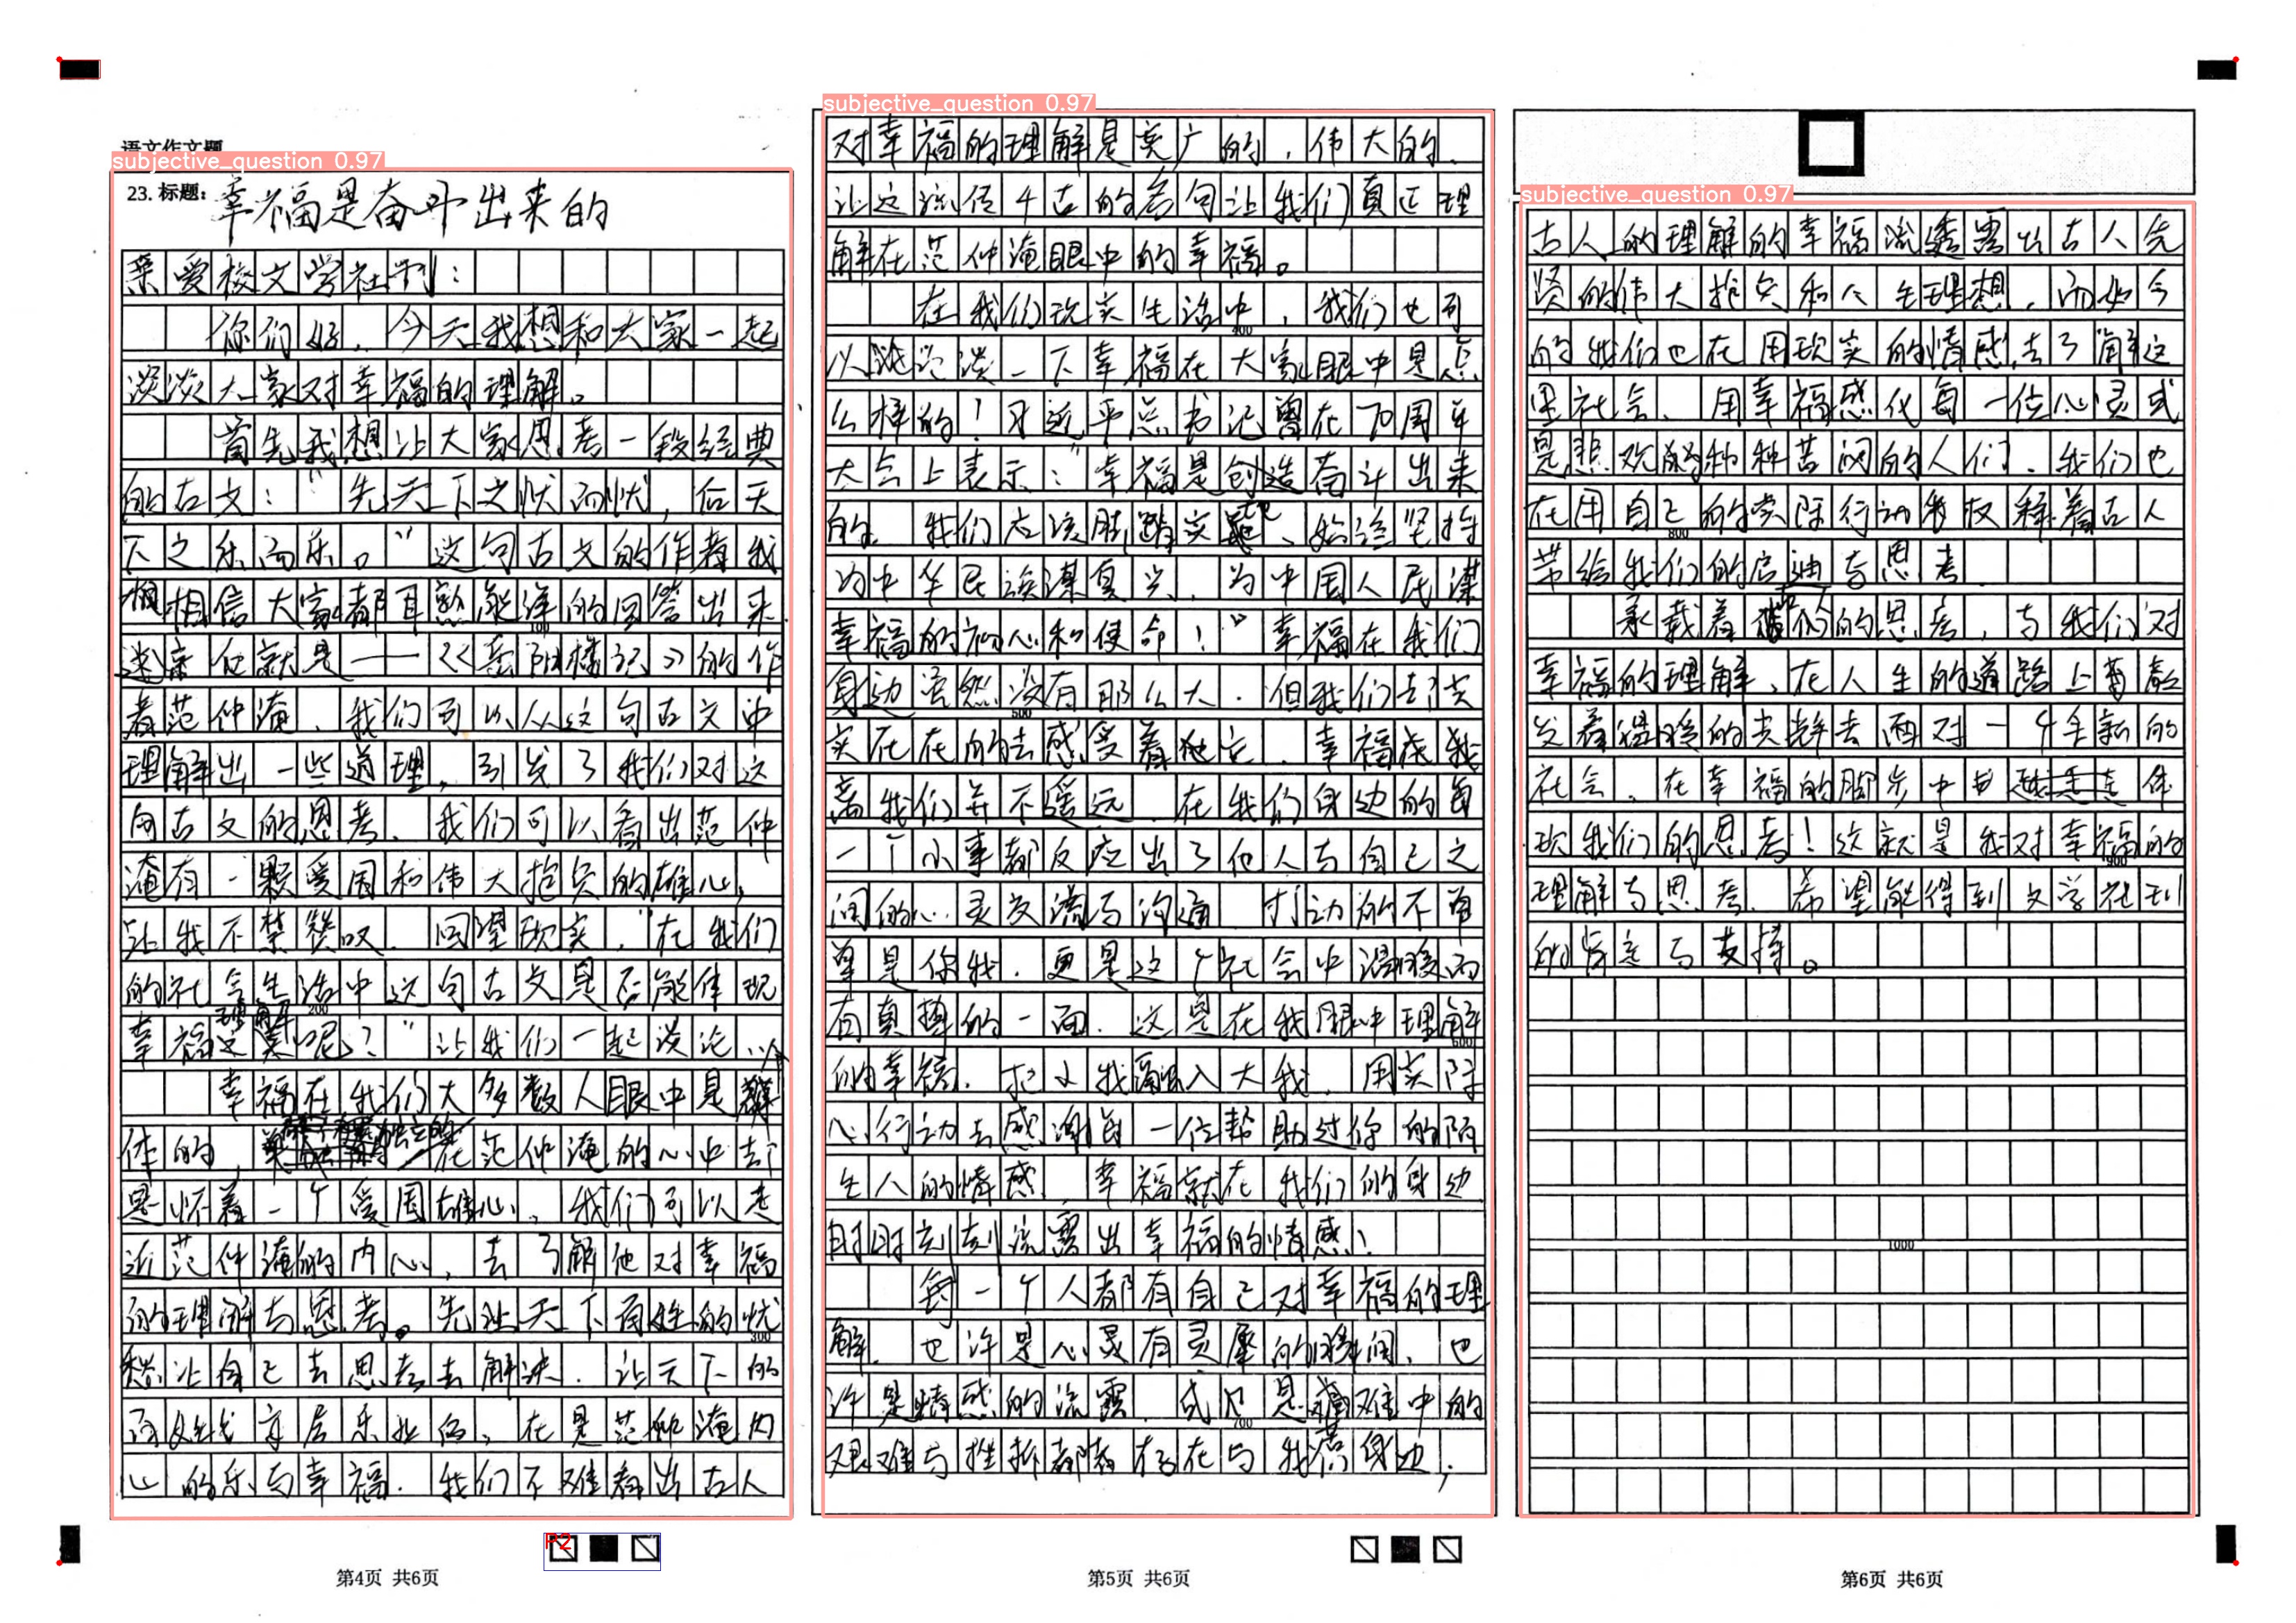 语文作文题
subjective_question 0.97
23. 标题：幸福是奋斗出来的
亲爱校文学社刊：
你们好，今天我想和大家一起
谈谈大家对幸福的理解。
首先我想让大家思考一段经典
的古文：“先天下之忧而忧，后天
下之乐而乐。”这句古文的作者我
相信大家都耳熟能详的回答出来
100
他就是——《岳阳楼记》的作
者范仲淹，我们可以从这句古文中
理解出一些道理，引发了我们对这
句古文的思考，我们可以看出范仲
淹有一颗爱国和伟大抱负的雄心，
让我不禁赞叹，回望现实，“在我们
的社会生活中这句古文是否能体现
200
幸福理解呢？”让我们一起谈论
幸福在我们大多数人眼中是
体的，在范仲淹的心中却
是怀着一个爱国雄心，我们可以走
近范仲淹的内心，去了解他对幸福
的理解与思考。先让天下百姓的忧
300
愁让自己去思考去解决，让天下的
百姓安居乐业后，在是范仲淹内
心的乐与幸福，我们不难看出古人
P2
第4页 共6页
subjective_question 0.97
对幸福的理解是宽广的，伟大的，
让这流传千古的名句让我们真正理
解在范仲淹眼中的幸福。
在我们现实生活中，我们也可
400
以谈一下幸福在大家眼中是怎
么样的！习近平总书记曾在70周年
大会上表示：“幸福是创造奋斗出来
的，我们应该脚踏实地、始终坚持
为中华民族谋复兴，为中国人民谋
幸福的初心和使命！”幸福在我们
身边虽然没有那么大，但我们却实
500
实在在的去感受着他它，幸福
离我们并不遥远，在我们身边的每
一个小事都反应出了他人与自己之
间的心灵交流与沟通，打动的不单
单是你我，更是这个社会中温暖而
有真挚的一面，这是在我眼中理解
600
的幸福，把小我融入大我，用实际
心行动去感谢每一位帮助过你的陌
生人的情感，幸福就在我们的身边
时时刻刻流露出幸福的情感！
每一个人都有自己对幸福的理
解，也许是心灵有灵犀的瞬间，也
许是情感的流露，或只是痛难中的
700
艰难与挫折都存在与我们身边，
第5页 共6页
subjective_question 0.97
古人的理解的幸福流透露出古人先
贤的伟大抱负和人生理想，而如今
的我们也在用现实的情感去了解这
里社会，用幸福感化每一位心灵或
是悲观种种苦闷的人们，我们也
在用自己的实际行动释着古人
800
带给我们的启迪与思考
承载着古人的思考，与我们对
幸福的理解，在人生的道路上
发着温暖的光辉去面对一个全新的
社会，在幸福的脚步中体
现我们的思考！这就是我对幸福的
900
理解与思考，希望能得到文学社刊
的肯定与支持。
1000
第6页 共6页